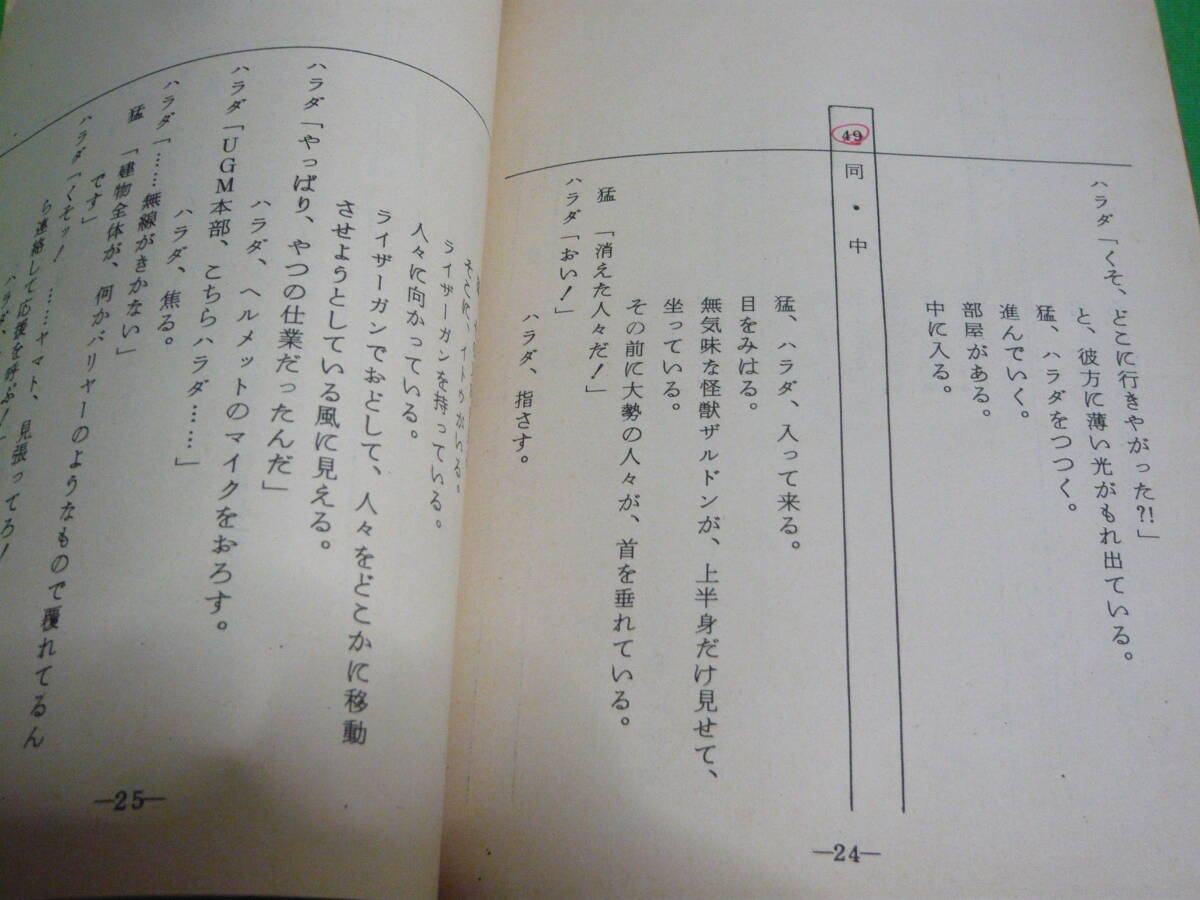 ハラダ「くそ、どこに行きやがった?!」
と、彼方に薄い光がもれ出ている。
猛、ハラダをつつく。
進んでいく。
部屋がある。
中に入る。
49 同・中
猛、ハラダ、入って来る。
目をみはる。
無気味な怪獣ザルドンが、上半身だけ見せて、
坐っている。
その前に大勢の人々が、首を垂れている。
猛「消えた人々だ!」
ハラダ「おい!」
ハラダ、指さす。
—24—
そこに、イトウがいる。
ライザーガンを持っている。
人々に向かっている。
ライザーガンでおどして、人々をどこかに移動
させようとしている風に見える。
ハラダ「やっぱり、やつの仕業だったんだ」
ハラダ、ヘルメットのマイクをおろす。
ハラダ「UGM本部、こちらハラダ……」
ハラダ、焦る。
ハラダ「……無線がきかない」
猛「建物全体が、何かバリヤーのようなもので覆れてるん
です」
ハラダ「くそッ!……ヤマト、見張ってろ!
ら連絡して応援を呼ぶ!」
—25—